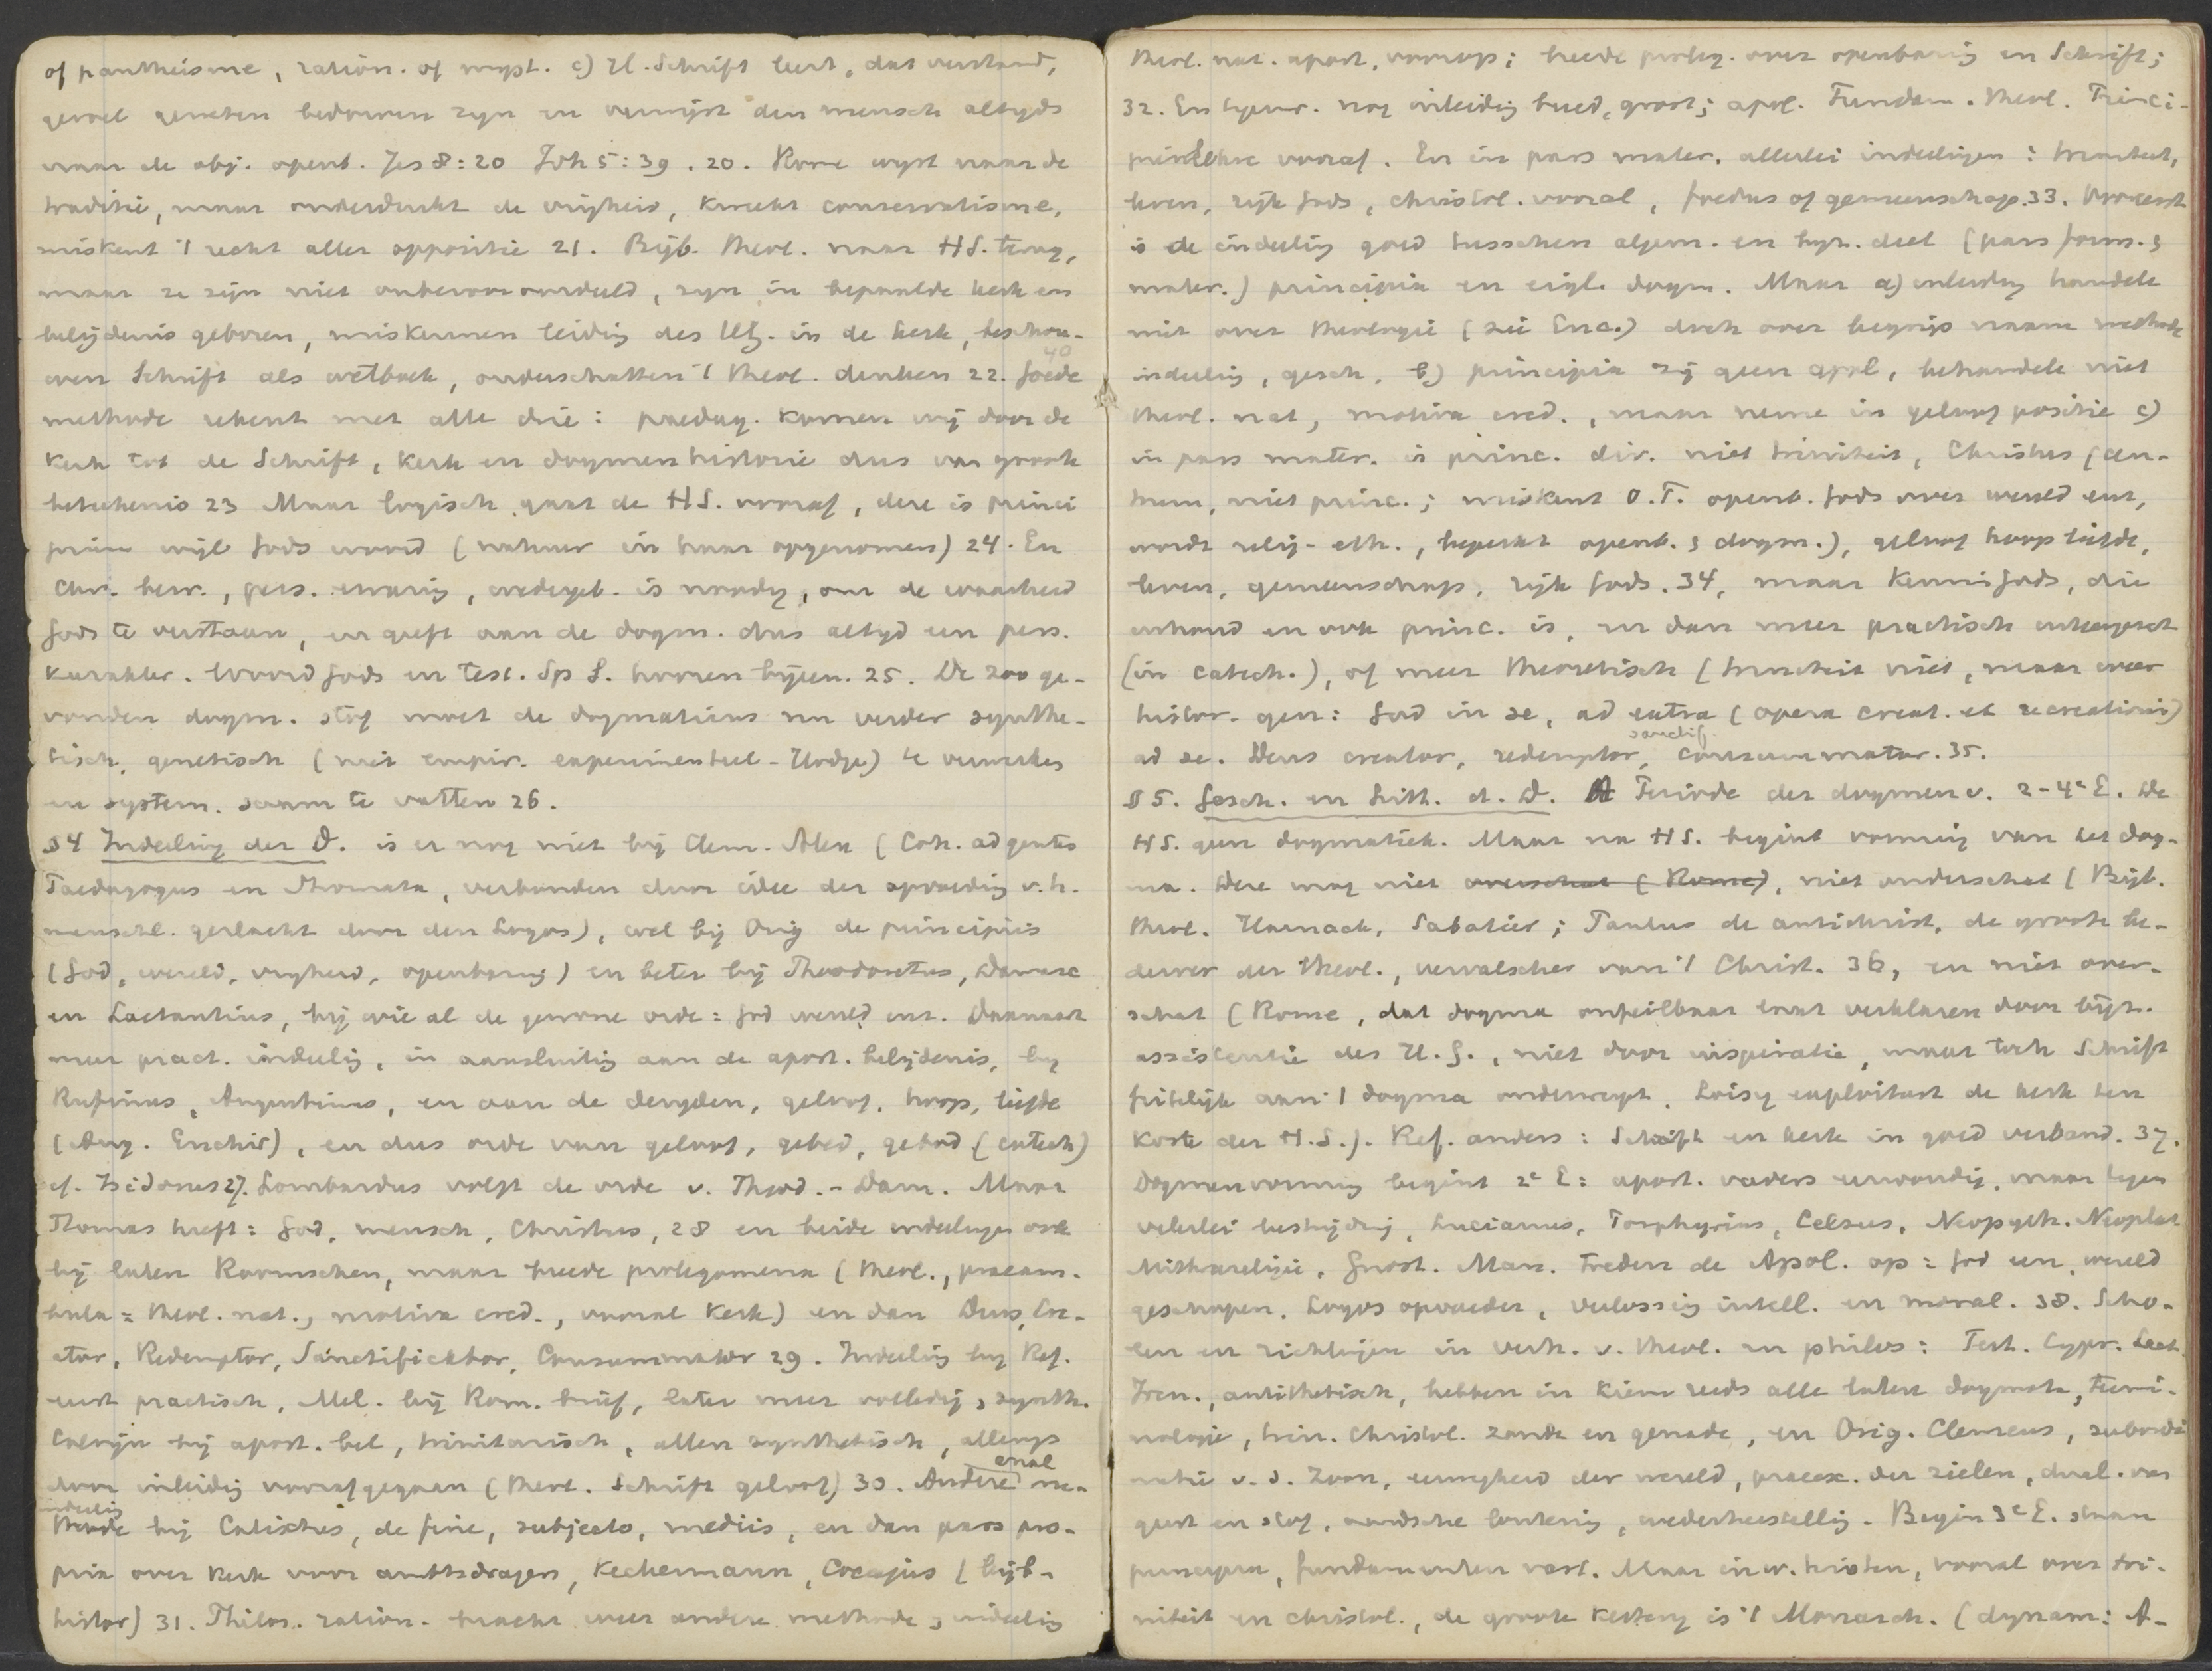 of pantheisme, ration. of myst. c) H. Schrift leert, dat verstand,
gevoel geweten bedorven zijn en verwijst den mensch altijds
naar de obj. openb. Jes 8:20 Joh 5:39. 20. Rome wijst naar de
traditie, maar onderdrukt de vrijheid, kweekt conservatisme,
miskent 't recht aller oppositie 21. Bijb. theol. naar HS. terug,
maar ze zijn niet onbevooroordeeld, zijn in bepaalde kerk en
belijdenis geboren, miskennen leidig des HG. in de kerk, beschou-
wen Schrift als wetboek, onderschatten 't theol. denken 22. Goede
40
methode rekent met alle drie: paedag. komen wij door de
Kerk tot de Schrift, kerk en dogmenhistorie dus van groote
beteekenis 23 Maar logisch gaat de HS. vooraf, deze is princi
pium wijl Gods woord (natuur in haar opgenomen) 24. En
Chr. bew., pers. ervarig, wedergeb. is noodig, om de waarheid
Gods te verstaan, en geeft aan de dogm. dus altijd een pers.
karakter. Woord Gods en Test. Sp S. hooren bijeen. 25. De zoo ge-
vonden dogm. stof moet de dogmaticus nu verder synthe-
tisch, genetisch (niet empir. experimenteel - Hodge) te verwerken
en system. saam te vatten 26.
§4 Indeeling der D. is er nog niet bij Clem. Alex (Coh. ad gentes
Paedagogus en Stromata, verbonden door idee der opvoedig v.h.
menschel. geslacht door den Logos), wel bij Orig de principiis
(God, wereld, vrijheid, openbaring) en beter bij Theodoretus, Damasc
en Lactantius, bij wie al de gewone orde: God wereld enz. Daarnaast
meer pract. indeelig, in aansluitig aan de apost. belijdenis, bij
Rufinus, Augustinus, en aan de deugden, geloof, hoop, liefde
(Aug. Enchir), en dus orde van geloof, gebed, gebod (catech)
cf. Isidorus 27. Lombardus volgt de orde v. Theod. - Dam. Maar
Thomas heeft: God, mensch, Christus, 28 en beide indeelingen ook
bij latere Roomschen, maar breede prolegomena (theol., praeam-
bula = theol. nat., motiva cred., vooral kerk) en dan Deus, Cre-
ator, Redemptor, Sanctificator, Consummator 29. Indeelig bij Ref.
eerst practisch, Mel. bij Rom. brief, later meer volledig, synth.
Calvijn bij apost. bel, trinitarisch, allen synthetisch, allengs
door inleidig voorafgegaan (theol. Schrift geloof) 30. Andere me-
anal
indeelig
thode bij Calixtus, de fine, subjecto, mediis, en dan pars pro-
pria over kerk voor ambtsdragers, Keckermann, Coccejus (bijb-
histor) 31. Philos. ration. bracht weer andere methode, indeelig
theol. nat. apart, voorop; breede proleg. over openbarig en Schrift;
32. En tgenw. nog inleidig breed, groot; apol. Fundam. theol. Princi-
pienlehre vooraf. En in pars mater. allerlei indeeligen: triniteit,
leven, rijk Gods, christol. vooral, foedus of gemeenschap. 33. Vooreerst
is de indeelig goed tusschen algem. en bijz. deel (pars form. &
mater.) principia en eigl. dogm. Maar a) inleidig handele
niet over theologie (zie Enc.) doch over begrijp naam methode
indeelig, gesch. b) principia zij geen apol, behandele niet
theol. nat, motiva cred., maar neme in geloof positie c)
in pars mater. is princ. div. niet triniteit, Christus (cen-
trum, niet princ.; miskent O.T. openb. Gods over wereld enz,
wordt relig-eth., beperkt openb. & dogm.), geloof hoop liefde,
leven, gemeenschap, rijk Gods. 34, maar Kennis Gods, die
inhoud en ook princ. is, en dan meer practisch uiteengezet
(in catech.), of meer theoretisch (triniteit niet, maar weer
histor-gen: God in se, ad extra (opera creat. et recreationis)
ad se. Deus creator, redemptor, consummator. 35.
sanctif.
§5. Gesch. en Litt. d. D. A Periode der dogmen v. 2-4e E. De
HS. geen dogmatiek. Maar na HS. begint vorming van het dog-
ma. Deze mag niet overschat (Rome), niet onderschat (Bijb.
theol. Harnack, Sabatier; Paulus de antichrist, de groote be-
derver der theol., vervalscher van 't Christ. 36, en niet over-
schat (Rome, dat dogma onfeilbaar laat verklaren door bijz.
assistentie des H.G., niet door inspiratie, maar toch Schrift
feitelijk aan 't dogma onderwerpt, Loisy exploiteert de kerk ten
koste der H.S.). Ref. anders: Schrift en kerk in goed verband. 37.
Dogmenvorming begint 2e E: apost. vaders eenvoudig, maar tegen
velerlei bestrijdig, Lucianus, Porphyrius, Celsus, Neopyth. Neoplat
Mithrareligie, Gnost. Man. treden de Apol. op: God een, wereld
geschapen, Logos opvoeder, verlossig intell. en moral. 38. Scho-
len en richtigen in verh. v. theol. en philos: Tert. Cypr. Lact.
Iren., antithetisch, hebben in kiem reeds alle latere dogmata, termi-
nologie, trin. Christol. zonde en genade, en Orig. Clemens, subordi
natie v.d. Zoon, eeuwigheid der wereld, praeex. der zielen, dual. van
geest en stof, aardsche loutering, wederherstellig. Begin 3e E. staan
principia, fundamenten vast. Maar inw. twisten, vooral over tri-
niteit en christol., de groote ketterij is 't Monarch. (dynam: A-